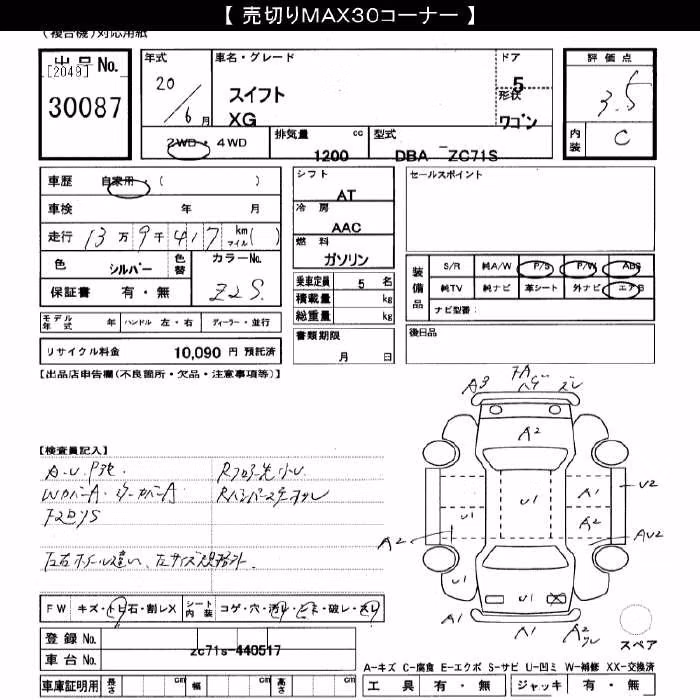 【 売切りMAX30コーナー 】
(複合機)対応用紙
出品 No.
[2049]
30087
年式
20/6月
車名・グレード
スイフト
XG
ドア
5
形状
ワゴン
評価点
3.5
内装
C
2WD・4WD
排気量 cc
1200
型式
DBA － ZC71S
車歴 自家用・( )
車検 年 月
走行 13万9千417 km マイル( )
色 シルバー 色替
カラーNo.
Z2S.
保証書 有・無
シフト
AT
冷房
AAC
燃料
ガソリン
乗車定員 5 名
積載量 kg
総重量 kg
書類期限
月 日
セールスポイント
装備品
S/R 純A/W P/S P/W ABS
純TV 純ナビ 革シート 外ナビ エアB
ナビ型番:
後日品
モデル年式 年
ハンドル 左・右
ディーラー・並行
リサイクル料金 10,090 円 預託済
【出品店申告欄(不良箇所・欠品・注意事項等)】
【検査員記入】
A.U.P他.
WカバーA.
左右ホイール違い、
FW キズ・トビ石・割レX
シート内装 コゲ・穴・汚レ・シミ・破レ・スレ
登録 No.
車台 No.
zc71s-440517
車庫証明用 長さ cm 幅 cm 高さ cm
A3
A2
U1
A1
U2
A2
AU2
A2
U1
U1
U1
A1
A1
A2
スペア
A-キズ C-腐食 E-エクボ S-サビ U-凹ミ W-補修 XX-交換済
工具 有・無
ジャッキ 有・無